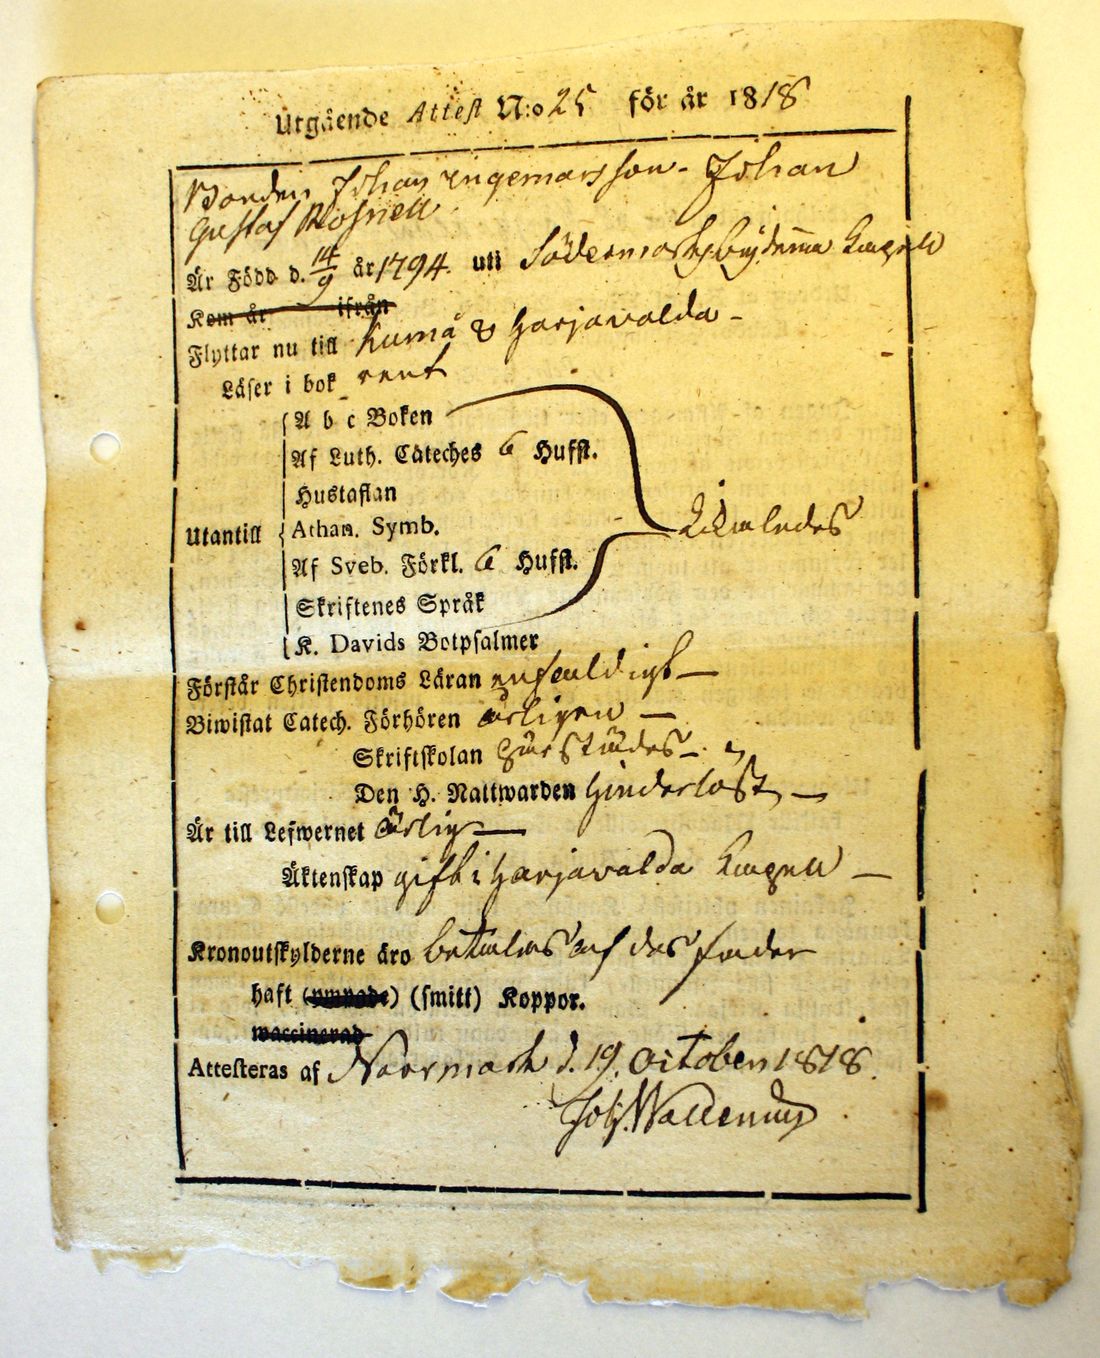 Utgående Attest N:o 25 för år 1818
Bonden Johan Ingemarsson - Johan
Gustaf Rosnell
Är Född d. 14/9 år 1794. uti Södermark by denna
Kom år ifrån
Flyttar nu till Kumå & Harjavalda -
Läser i bok rent
A b c Boken
Af Luth. Cateches 6 Hufst.
Hustaflan
Utantill Athan. Symb.
Af Sveb. Förkl. 6 Hufst.
Skriftenes Språk
K. Davids Botpsalmer
Förstår Christendoms Läran enfaldigt -
Biwistat Catech. Förhören årligen -
Skriftskolan härstädes -
Den H. Nattwarden Hinderlöst -
Är till Lefwernet ärlig -
Äktenskap gift i Harjavalda -
Kronoutskylderne äro betalas af des fader
haft (ympade) (smitt) Koppor.
waccinerad
Attesteras af Norrmark d. 19. October 1818.
Joh: